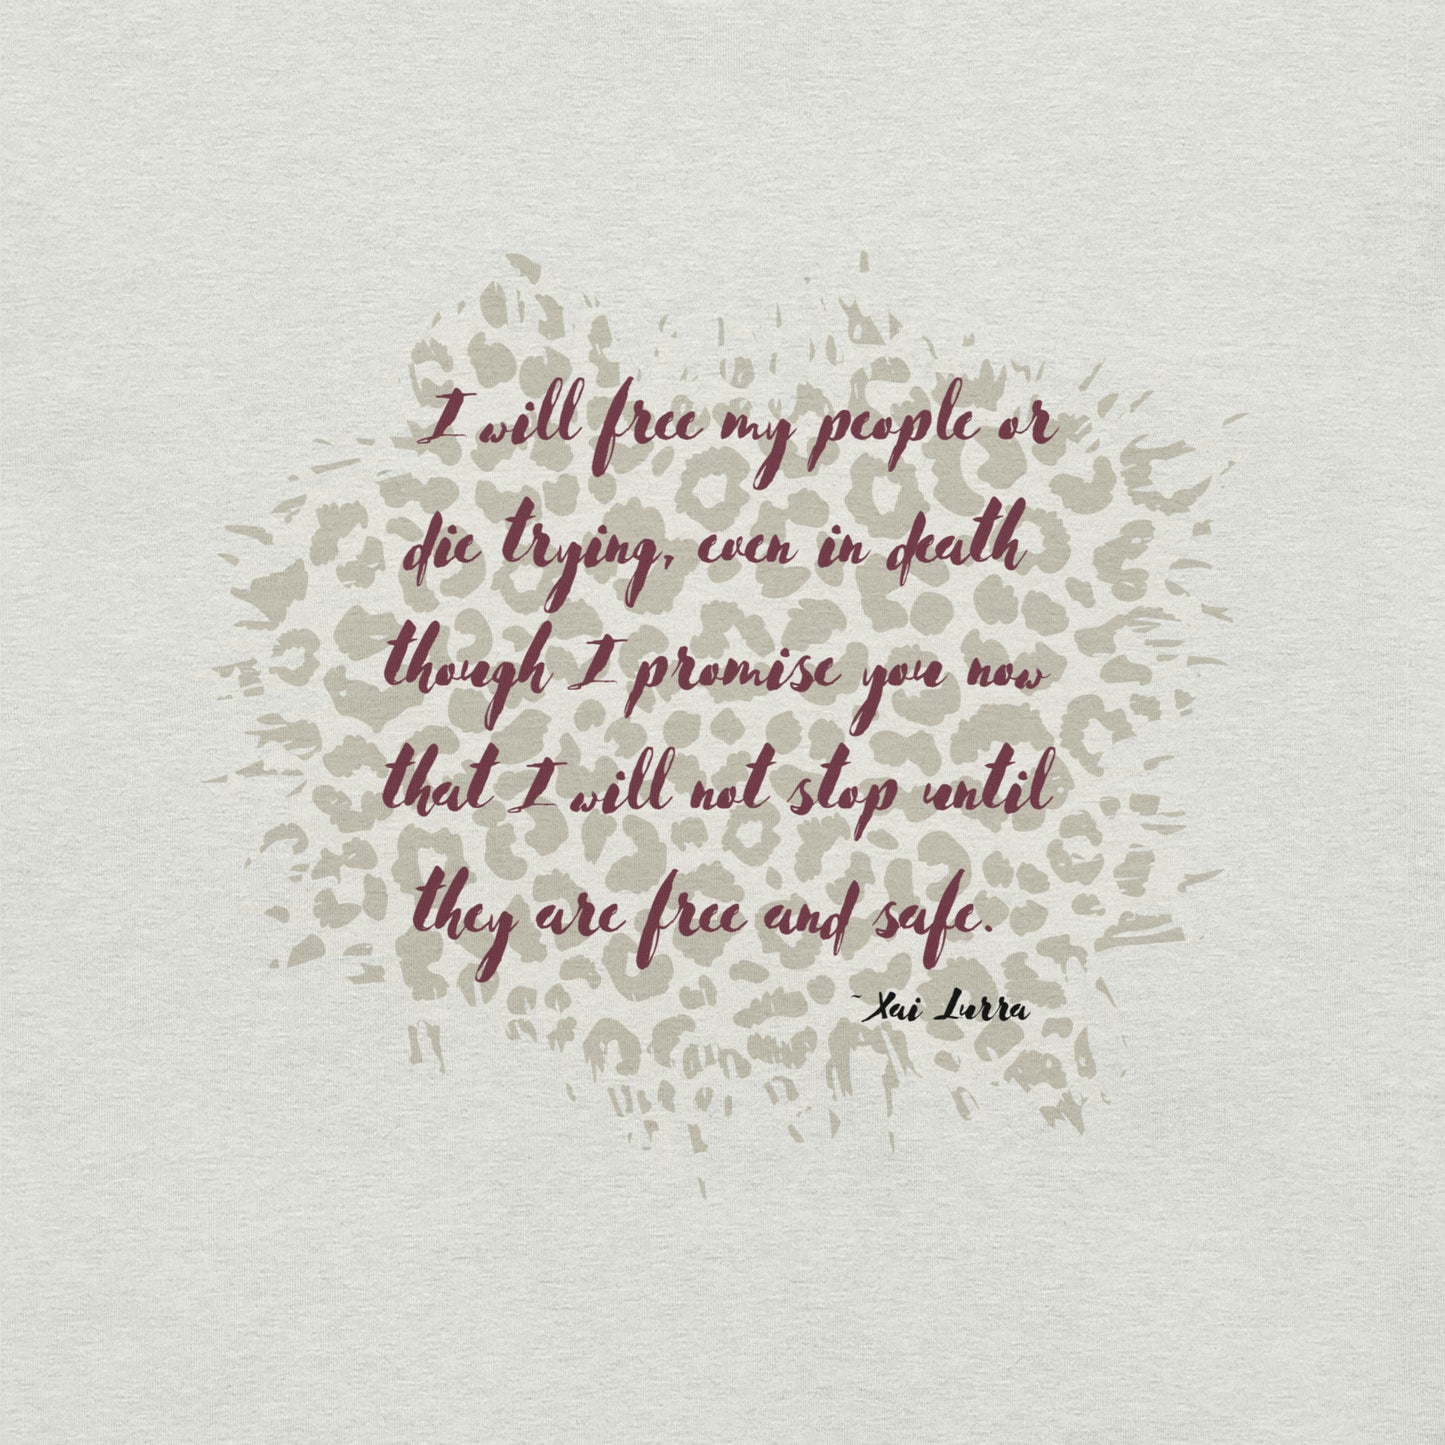 I will free my people or
die trying, even in death
though I promise you now
that I will not stop until
they are free and safe.
~Xai Lurra